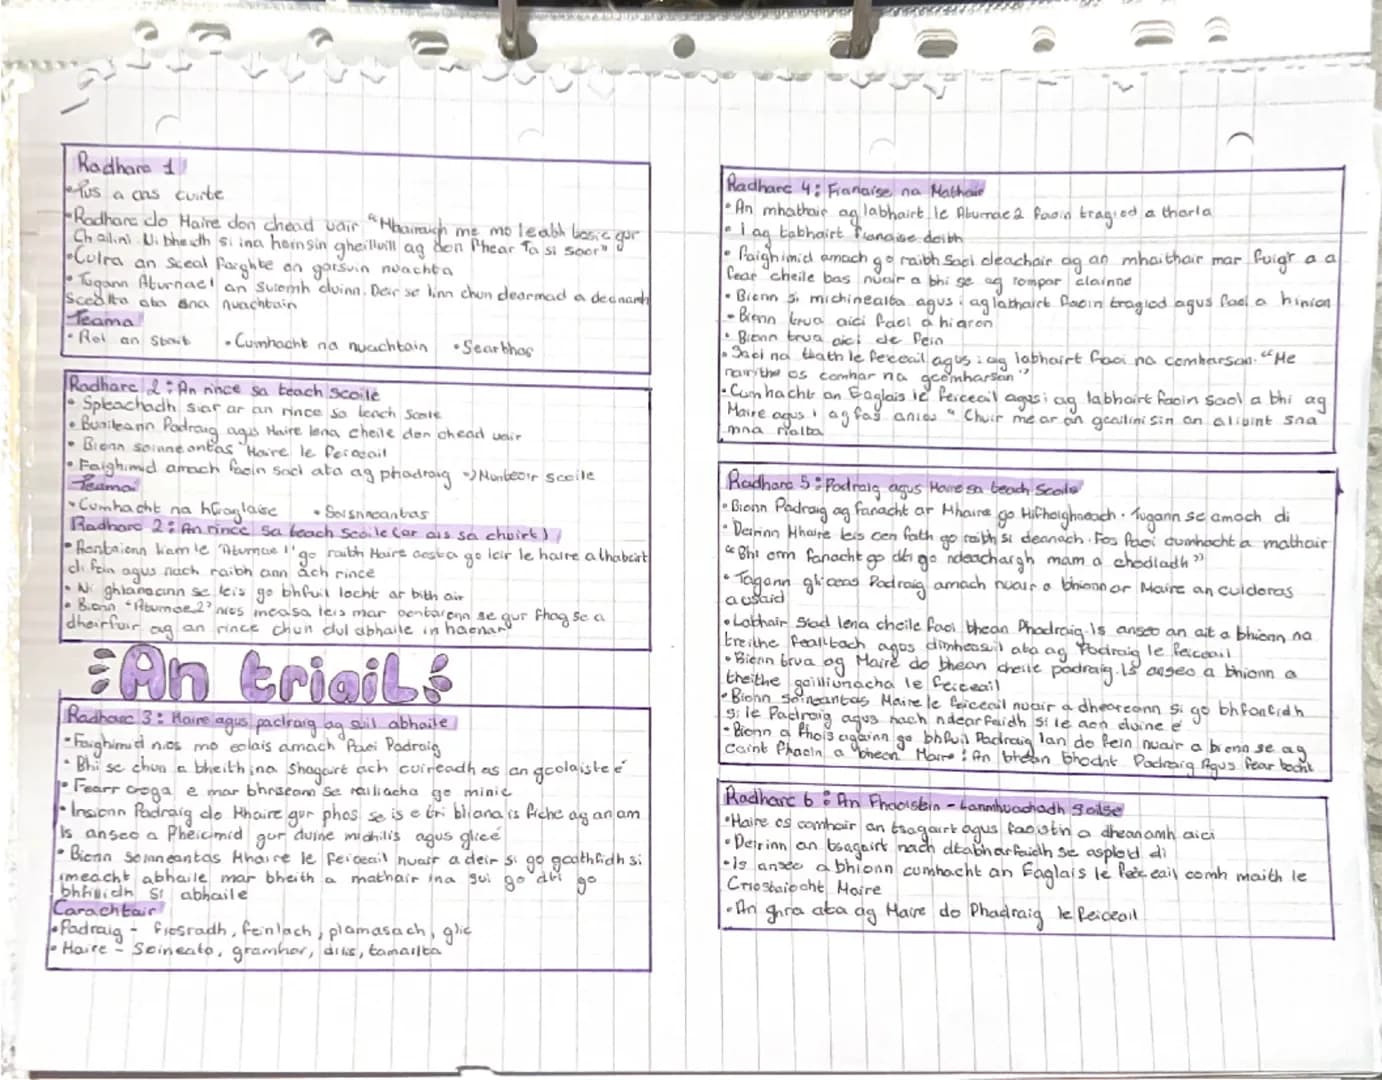 Radharc 1
• Tus a cas cuirte
• Radharc do Maire don chead uair "Mharaigh me mo leabh bosic gur
Ch ailini. Ni bheidh si ina hoinsin gheilluill ag aon fhear Ta si soor"
• Culra an sceal Faighte on garsuin nuachta
• Tugann Aturnae1 an suiomh duinn. Deir se linn chun dearmad a deanamh
Scealta ata sna nuachtain
Teama
• Rol an Stait • Cumhacht na nuachtain • Searbhas
Radharc 2 : An rince sa teach scoile
• Spleachadh siar ar an rince sa teach Scoile
• Buaileann Padraig agus Maire lena cheile don chead uair
• Bionn soinneantas Maire le feiceail
• Faighimid amach faoin saol ata ag phadraig => Munteoir scoile
Teamai
• Cumhacht na hEaglaise • Soisnneantas
Radharc 2 : An rince sa teach Scoile (ar ais sa chuirt)
• Aontaionn Liam le 'Aturnae 1' go raibh Maire aosta go leir le haire a thabairt
di fein agus nach raibh ann ach rince
• Ni ghlanaann se leis go bhfuil locht ar bith air
• Bionn "Aturnae2" nios measa leis mar aontaionn se gur fhag se a
dheirfuir ag an rince chun dul abhaile in haenar
An triail
Radharc 3 : Maire agus padraig ag siul abhaile
• Faighimid nios mo eolais amach faoi Padraig
• Bhi se chun a bheith ina Shagart ach cuireadh as an gcolaiste é
• Fearr croga e mar bhriseann Se rialiacha go minic
• Insionn Padraig do Mhaire gur phos se is e tri bliana is fiche ag an am
Is anseo a Pheicimid gur duine midhilis agus glic é
• Bionn Soinneantas Mhaire le feiceail nuair a deir si go gcaithfidh si
imeacht abhaile mar bheith a mathair ina sui go dti go
bhfillidh Si abhaile
Carachtair
• Padraig - fiosradh, feinlach, plamasach, glic
• Maire - Soineata, gramhar, dilis, tamailta
Radharc 4 : Fianaise na Mathair
• An mhathair ag labhairt le Aturnae 2 faoin tragied a tharla
• I ag tabhairt fianaise doibh
• Faighimid amach go raibh Saol cleachair ag an mhaithair mar fuigr a a
fear cheile bas nuair a bhi se ag rompar clainne
• Bionn Si michinealta agus i ag labhairt faoin tragiod agus faoi a hinion
• Bionn trua aici faoi a hiaron
• Bionn trua aici de fein
• Saol na tuath le feiceail agus i ag labhairt faoi na comharsan. "Me
nairithe os comhar na gcomharsan"
• Cumhacht an Eaglais le feiceail agus i ag labhairt faoin saol a bhi ag
Maire agus i ag fas anios " Chuir me ar an gcailini sin an aliuint sna
mna rialta
Radharc 5 : Padraig agus Maire sa teach Scoile
• Bionn Padraig ag fanacht ar Mhaire go Mifhoighneach. Tugann se amach di
• Deirinn Mhaire leis cen fath go raibh si deanach. Fos faoi cumhacht a mathair
" Bhi orm fanacht go dti go ndeachaigh mam a chodladh"
• Tagann gliceas Padraig amach nuair a bhionn ar Maire an culdoras
a usaid
• Labhair Siad lena cheile faoi bhean Phadraig. Is anseo an ait a bhionn na
treithe fealltach agus dimheasuil ata ag Padraig le feiceail
• Bionn trua ag Maire do bhean cheile padraig. Is anseo a bhionn a
threithe gailliunacha le feiceail
• Bionn Soineantas Maire le feiceail nuair a dhearcann Si go bhfanfidh
si le Padraig agus nach ndearfaidh Si le aon duine é
• Bionn a fhois againn go bhfuil Padraig lan do fein nuair a bionn se ag
caint fhaoin a bhean Maire : An bhean bhocht Padraig Agus fear bocht
Radharc 6 : An Fhaoistin - Lanmhuachadh Sailse
• Maire os comhair an tsagairt agus faoistin a dheanamh aici
• Deirinn an tsagairt nach dtabharfaidh se asploid di
• Is anseo a bhionn cumhacht an Eaglais le feiceail comh maith le
Criostaiocht Maire
• An gra ata ag Maire do Phadraig le feiceail